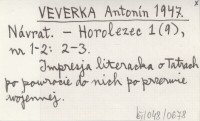 VEVERKA Antonín 1947.
Návrat. - Horolezec 1(9),
nr 1-2: 2-3.
Impresja literacka o Tatrach
po powrocie do nich po przerwie
wojennej.
bj/048/0678